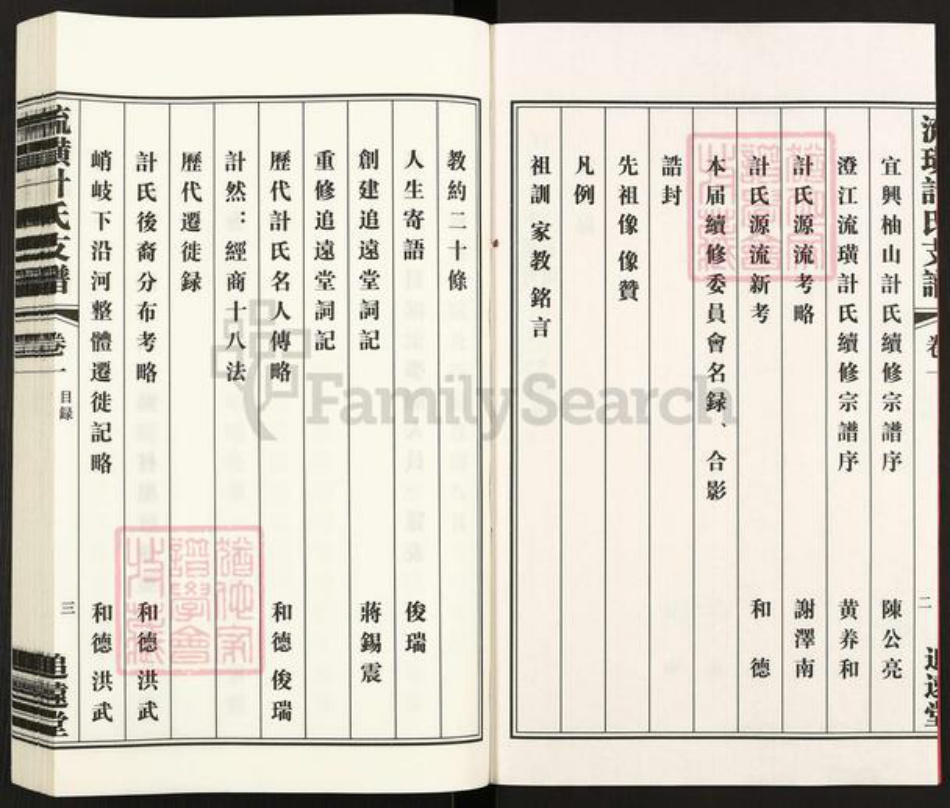 流璜計氏支譜 卷一 二 追遠堂
宜興柚山計氏續修宗譜序 陳公亮
澄江流璜計氏續修宗譜序 黄养和
計氏源流考略 謝澤南
計氏源流新考 和德
本届續修委員會名録、合影
誥封
先祖像 像贊
凡例
祖訓 家教 銘言
教約二十條
人生寄語 俊瑞
創建追遠堂詞記 蔣錫震
重修追遠堂詞記
歷代計氏名人傳略 和德 俊瑞
計然：經商十八法
歷代遷徙録
計氏後裔分布考略 和德 洪武
峭岐下沿河整體遷徙記略 和德 洪武
流璜計氏支譜 卷一 目録 三 追遠堂
FamilySearch